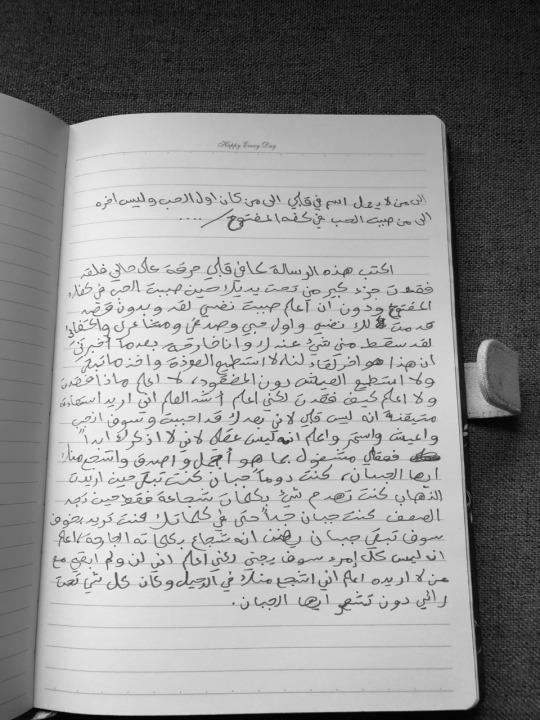 Happy Every Day
الى من لا يهمل اسم في قلبي الى من كان اول الحب وليس اخره
الى من صببت الحب في كفه المفتوح / ....
اكتب هذه الرسالة كما في قلبي حرقت على حالي فلقد
فقدت جزء كبير من تحت يديك حين صببت الحب في كفك
المفتوح ودون ان اعلم صببت نفسي لقد وبدون قصد
قدمت لك نفسي واول حبي وصدقي ومشاعري واكتفائي
لقد سقط مني شيء عندك وانا خارجة بعدما أخبرتني
ان هذا هو اخر لقاء لنا، لا استطيع العودة واخذ ما تبقى
ولا استطيع العيش دون المفقود، لا اعلم ماذا فقدت
ولا اعلم كيف فقدت لكني اعلم أشد العلم اني اريد استعادته
متيقنة انه ليس قلبي لاني بعدك قد احببت وسوف انجي
واعيش واستمر واعلم انه ليس عقلي لاني لا اذكرك ابداً
فعقلي مشغول بما هو أجمل واصدق واشجع منك
ايها الجبان، كنت دوماً جبان كنت تبقى حين اردت
الذهاب كنت تهدم شيء بكلمات شجاعة فقط حين تجد
الضعف كنت جبان جداً حتى في كلماتك كنت تريد بخوف
سوف تبقى جبان يظن انه شجاع بكلماته الجارحة، اعلم
انه ليس كل امرء سوف يرجى لكني اعلم اني لن ولم ابقى مع
من لا اريده اعلم اني اشجع منك في الرحيل وكان كل شي تحت
رائي دون تشعر ايها الجبان.